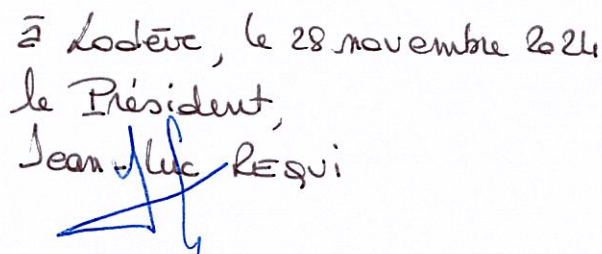 à Lodève, le 28 novembre 2024
le Président,
Jean-Luc REQUI